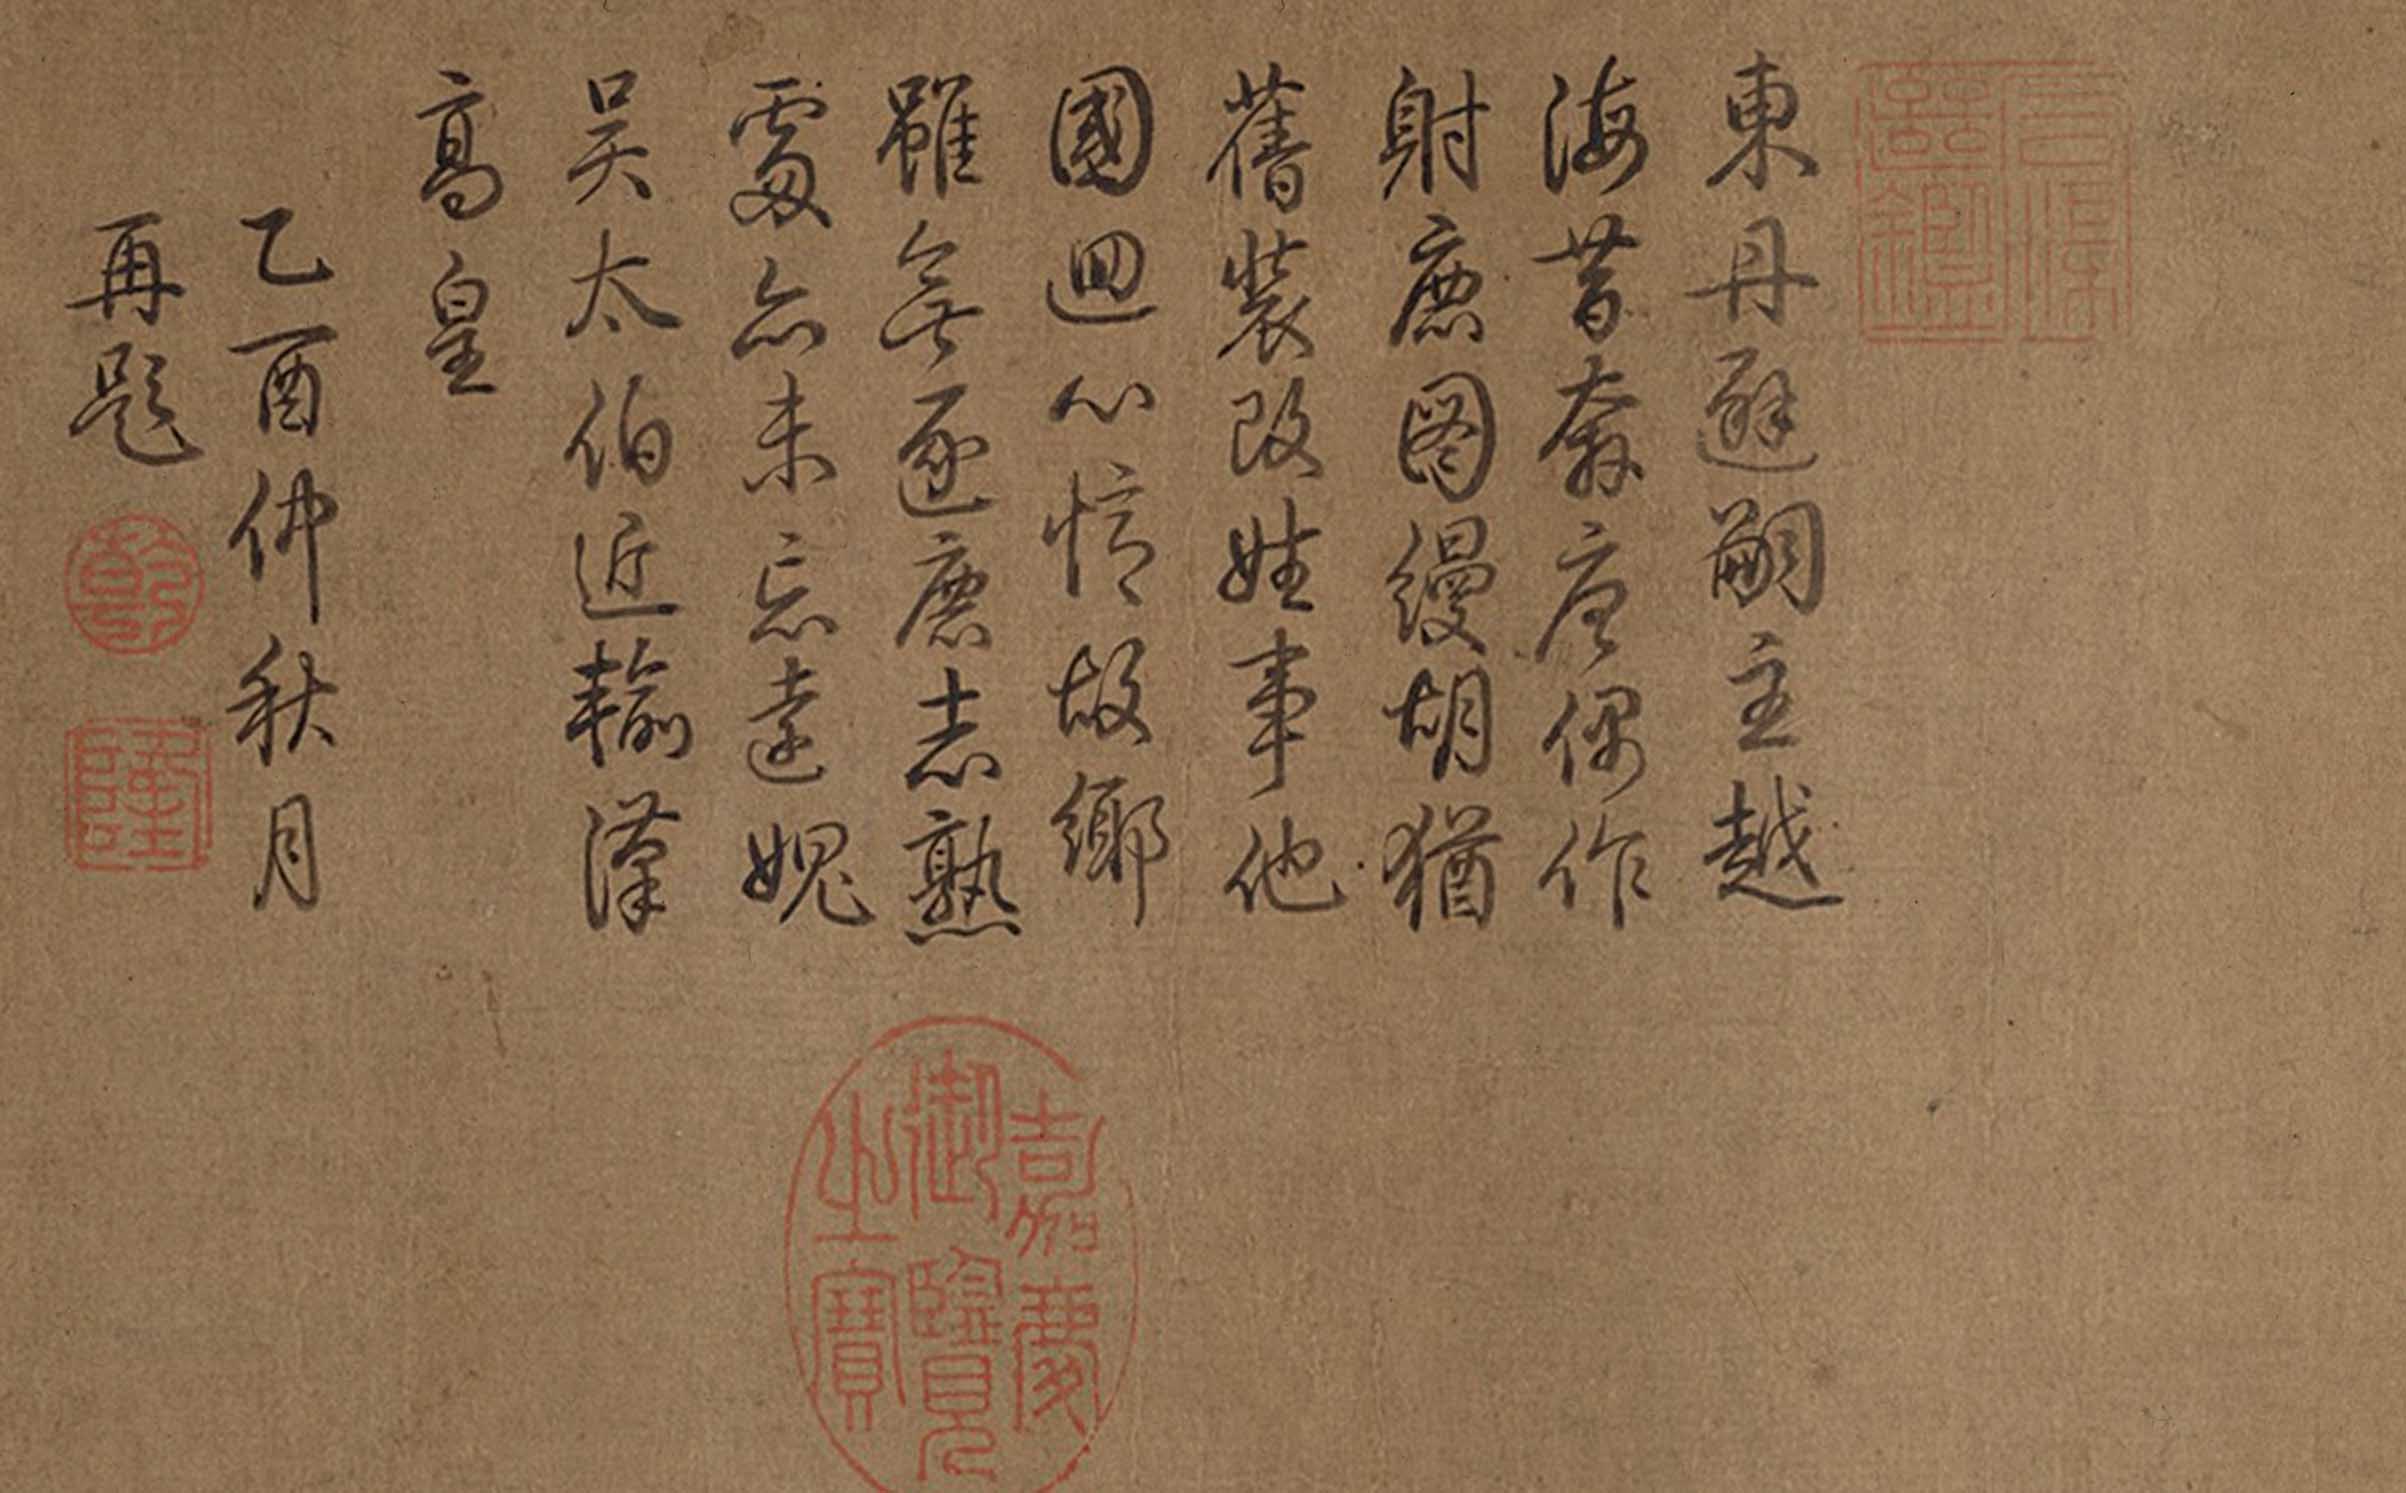 東丹避嗣主越
海昔奔唐偶作
射鹿圖縵胡猶
舊裝改姓事他
國迴心憶故鄉
雖無逐鹿志熟
處亦未忘遠媿
吳太伯近輸漢
高皇
乙酉仲秋月
再題
乾
隆
嘉慶
御覽
之寶